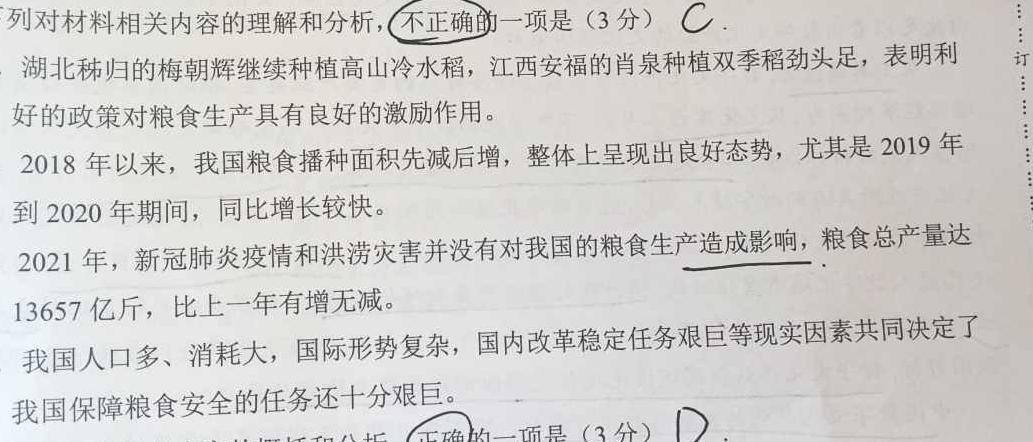 列对材料相关内容的理解和分析，不正确的一项是（3 分） C.
湖北秭归的梅朝辉继续种植高山冷水稻，江西安福的肖泉种植双季稻劲头足，表明利
好的政策对粮食生产具有良好的激励作用。
2018 年以来，我国粮食播种面积先减后增，整体上呈现出良好态势，尤其是 2019 年
到 2020 年期间，同比增长较快。
2021 年，新冠肺炎疫情和洪涝灾害并没有对我国的粮食生产造成影响，粮食总产量达
13657 亿斤，比上一年有增无减。
我国人口多、消耗大，国际形势复杂，国内改革稳定任务艰巨等现实因素共同决定了
我国保障粮食安全的任务还十分艰巨。
概括和分析，正确的一项是（3 分） D.
订